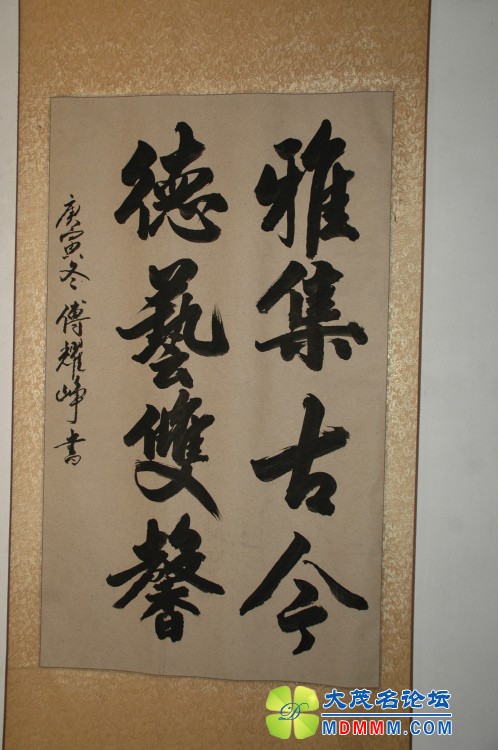 雅集古今
德藝雙馨
庚寅冬傅耀峥書
大茂名论坛
MDMMM.COM